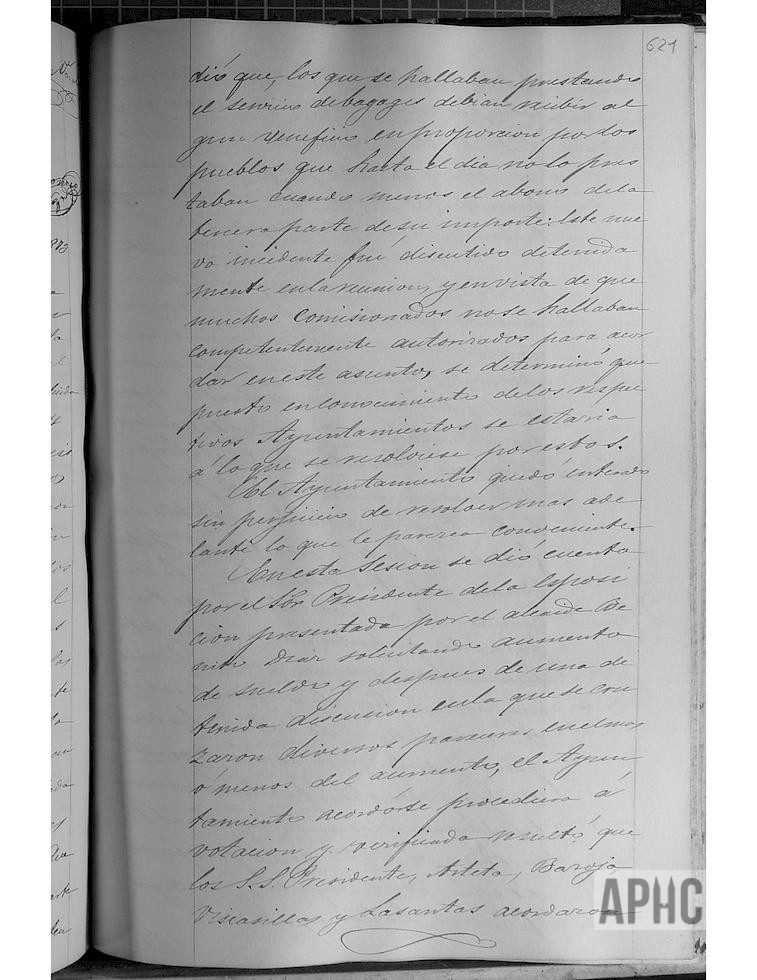 621
dió que, los que se hallaban prestando
el servicio de bagages debian recibir al
gun veneficio en proporcion por los
pueblos que hasta el dia no lo pres
taban cuando menos el abono de la
tercera parte de su importe: Este nue
vo incidente fué discutido detenida
mente en la reunion, y en vista de que
muchos Comisionados no se hallaban
competentemente autorizados para acor
dar en este asunto, se determinó que
puesto en conocimiento de los respec
tivos Ayuntamientos se estaria
a lo que se resolviese por estos.
El Ayuntamiento quedó enterado
sin perjuicio de resolver mas ade
lante lo que le parezca conveniente.
En esta Sesion se dió cuenta
por el Sor. Presidente de la Esposi
cion presentada por el alcaide Be
nito Diaz solicitando aumento
de sueldo y despues de una de
tenida discusion en la que se cru
zaron diversos pareceres en el mas
ó menos del aumento, el Ayun
tamiento acordó se procediera á
votacion y verificada resultó que
los S.S. Presidente, Arleta, Baroja
Viscasillas y Lasantas acordaron
APHC